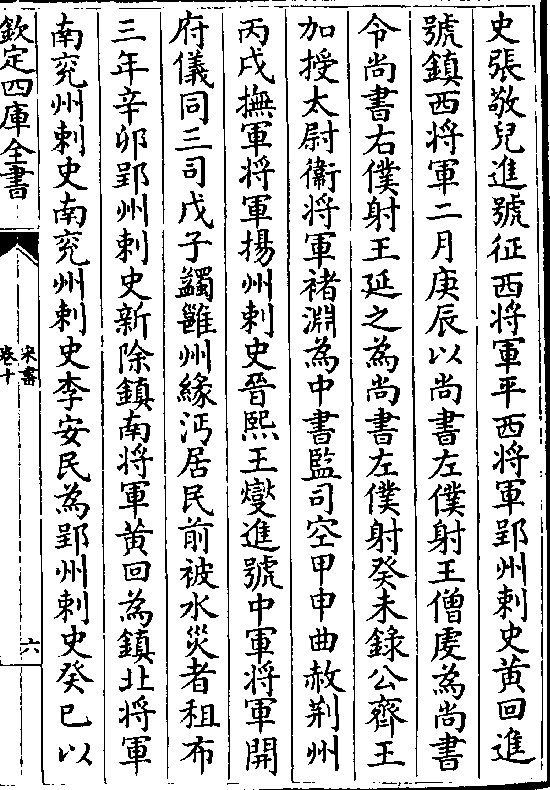 史張敬兒進號征西將軍平西將軍郢州刺史黄回進
號鎮西將軍二月庚辰以尚書左僕射王僧虔為尚書
令尚書右僕射王延之為尚書左僕射癸未錄公齊王
加授太尉衞將軍褚淵為中書監司空甲申曲赦荆州
丙戌撫軍將軍揚州刺史晉熙王燮進號中軍將軍開
府儀同三司戊子蠲雝州緣沔居民前被水災者租布
三年辛卯郢州刺史新除鎮南將軍黄回為鎮北將軍
南兖州刺史南兖州刺史李安民為郢州刺史癸巳以
欽定四庫全書
宋書
卷十
六